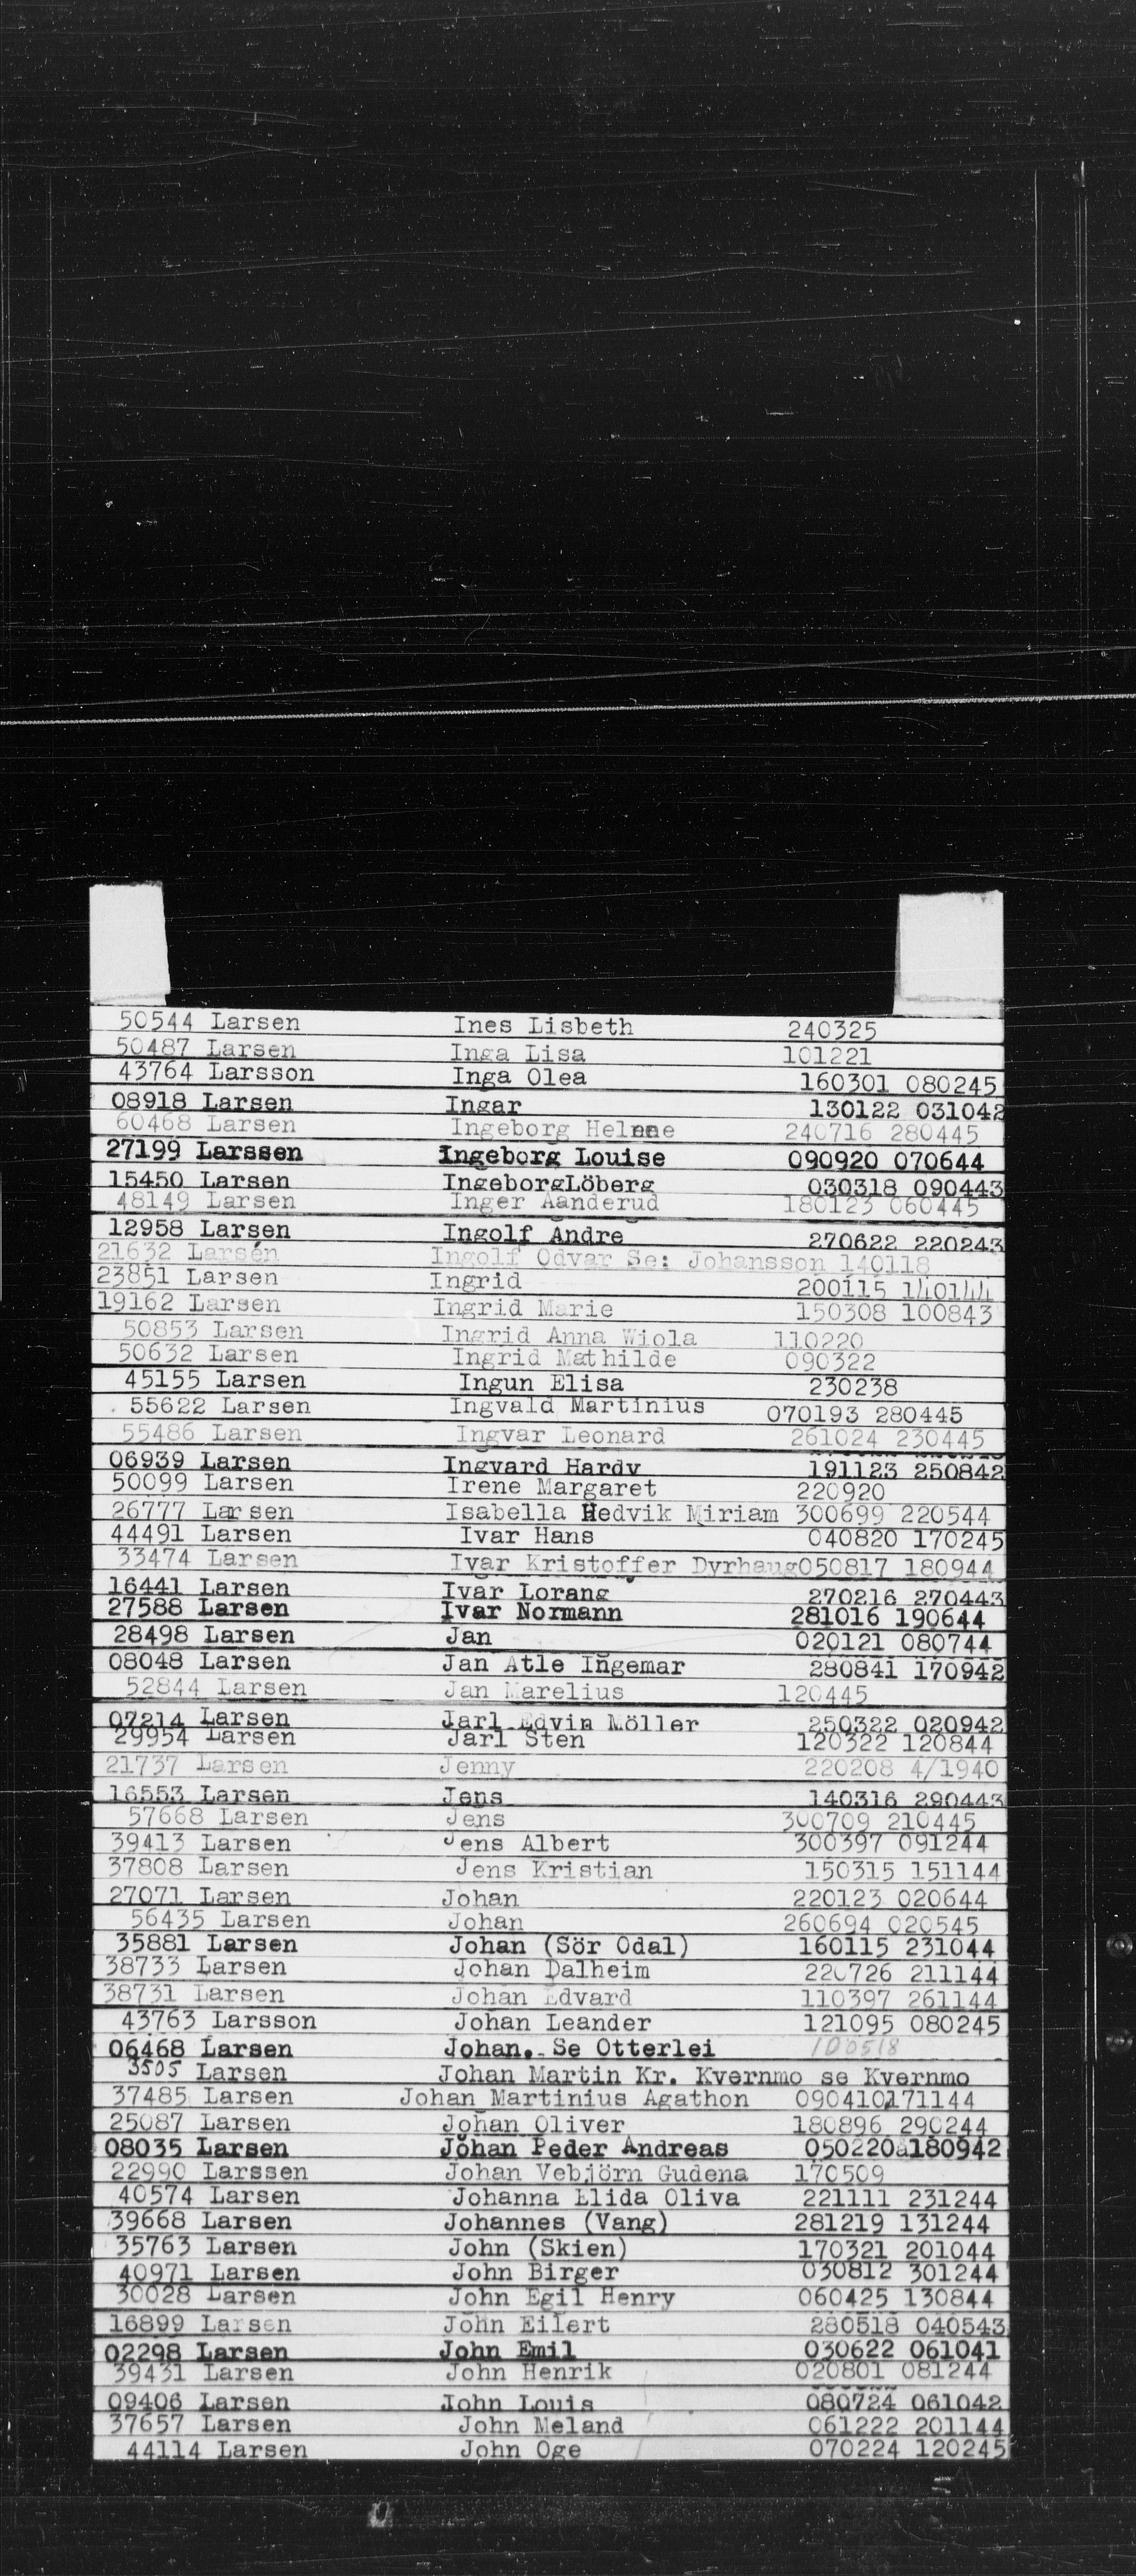 50544 Larsen Ines Lisbeth 240325
50487 Larsen Inga Lisa 101221
43764 Larsson Inga Olea 160301 080245
08918 Larsen Ingar 130122 031042
60468 Larsen Ingeborg Helene 240716 280445
27199 Larssen Ingeborg Louise 090920 070644
15450 Larsen IngeborgLöberg 030318 090443
48149 Larsen Inger Aanderud 180123 060445
12958 Larsen Ingolf Andre 270622 220243
21632 Larsén Ingolf Odvar Se: Johansson 140118
23851 Larsen Ingrid 200115 140144
19162 Larsen Ingrid Marie 150308 100843
50853 Larsen Ingrid Anna Wiola 110220
50632 Larsen Ingrid Mathilde 090322
45155 Larsen Ingun Elisa 230238
55622 Larsen Ingvald Martinius 070193 280445
55486 Larsen Ingvar Leonard 261024 230445
06939 Larsen Ingvard Hardy 191123 250842
50099 Larsen Irene Margaret 220920
26777 Larsen Isabella Hedvik Miriam 300699 220544
44491 Larsen Ivar Hans 040820 170245
33474 Larsen Ivar Kristoffer Dyrhaug050817 180944
16441 Larsen Ivar Lorang 270216 270443
27588 Larsen Ivar Normann 281016 190644
28498 Larsen Jan 020121 080744
08048 Larsen Jan Atle Ingemar 280841 170942
52844 Larsen Jan Marelius 120445
07214 Larsen Jarl Edvin Möller 250322 020942
29954 Larsen Jarl Sten 120322 120844
21737 Larsen Jenny 220208 4/1940
16553 Larsen Jens 140316 290443
57668 Larsen Jens 300709 210445
39413 Larsen Jens Albert 300397 091244
37808 Larsen Jens Kristian 150315 151144
27071 Larsen Johan 220123 020644
56435 Larsen Johan 260694 020545
35881 Larsen Johan (Sör Odal) 160115 231044
38733 Larsen Johan Dalheim 220726 211144
38731 Larsen Johan Edvard 110397 261144
43763 Larsson Johan Leander 121095 080245
06468 Larsen Johan. Se Otterlei 100518
3505 Larsen Johan Martin Kr. Kvernmo se Kvernmo
37485 Larsen Johan Martinius Agathon 090410 171144
25087 Larsen Johan Oliver 180896 290244
08035 Larsen Johan Peder Andreas 050220a180942
22990 Larssen Johan Vebjörn Gudena 170509
40574 Larsen Johanna Elida Oliva 221111 231244
39668 Larsen Johannes (Vang) 281219 131244
35763 Larsen John (Skien) 170321 201044
40971 Larsen John Birger 030812 301244
30028 Larsen John Egil Henry 060425 130844
16899 Larsen John Eilert 280518 040543
02298 Larsen John Emil 030622 061041
39431 Larsen John Henrik 020801 081244
09406 Larsen John Louis 080724 061042
37657 Larsen John Meland 061222 201144
44114 Larsen John Oge 070224 120245